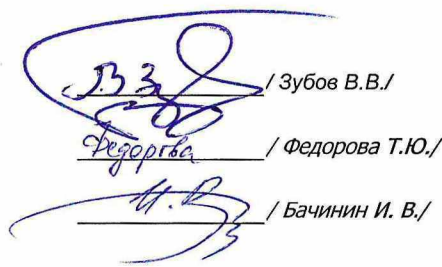 / Зубов В.В./
Федорова / Федорова Т.Ю./
/ Бачинин И. В./